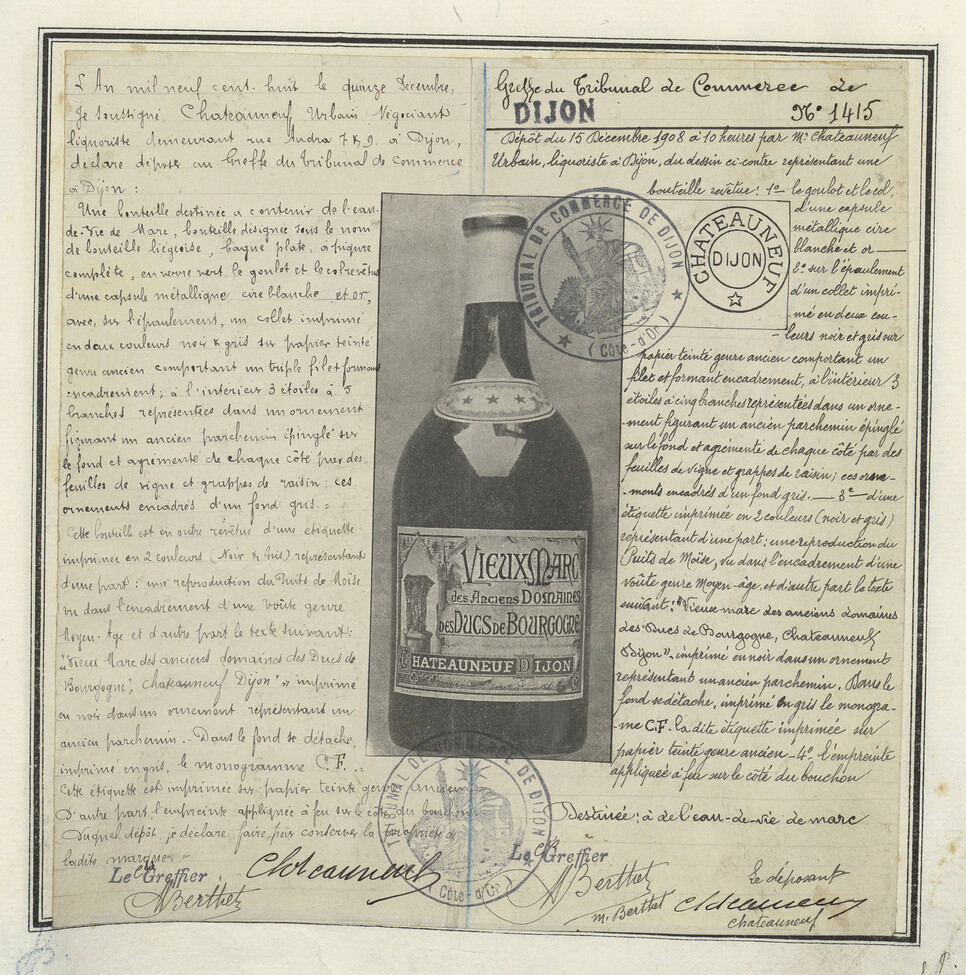 L'An mil neuf cent huit le quinze Décembre,
Je soussigné Chateauneuf Urbain Négociant
liquoriste demeurant rue Audra 7 & 9 à Dijon,
déclare déposer au Greffe du Tribunal de Commerce
à Dijon :
Une bouteille destinée à contenir de l'eau-
de-Vie de Marc, bouteille désignée sous le nom
de bouteille liégeoise, bague plate, à piqure
complète, en verre vert, le goulot et le col revêtus
d'une capsule métallique cire blanche et or,
avec, sur l'épaulement, un collet imprimé
en deux couleurs noir & gris sur papier teinté
genre ancien comportant un triple filet formant
encadrement ; à l'intérieur 3 étoiles à 5
branches représentées dans un ornement
figurant un ancien parchemin épinglé sur
le fond et agrémenté de chaque côté par des
feuilles de vigne et grappes de raisin ; ces
ornements encadrés d'un fond gris. =
Cette bouteille est en outre revêtue d'une étiquette
imprimée en 2 couleurs (Noir & Gris) représentant
d'une part : une reproduction du Puits de Moïse
vu dans l'encadrement d'une voûte genre
Moyen-Age et d'autre part le texte suivant :
"Vieux Marc des anciens domaines des Ducs de
Bourgogne", Chateauneuf Dijon" imprimé
en noir dans un ornement représentant un
ancien parchemin. - Dans le fond se détache,
imprimé en gris, le monogramme C.F. -
Cette étiquette est imprimée sur papier teinté genre ancien
D'autre part l'empreinte appliquée à feu sur le côté du bouchon
Duquel dépôt, je déclare faire pour conserver la propriété de
ladite marque =
Le Greffier
Chateauneuf
A Berthet
Greffe du Tribunal de Commerce de
DIJON
N° 1415
Dépôt du 15 Décembre 1908 à 10 heures par Mr Chateauneuf
Urbain, liquoriste à Dijon, du dessin ci-contre représentant une
bouteille revêtue : 1° le goulot et le col,
d'une capsule
métallique cire
blanche et or —
2° sur l'épaulement
d'un collet impri-
mé en deux cou-
leurs noir et gris sur
papier teinté genre ancien comportant un
filet et formant encadrement, à l'intérieur 3
étoiles à cinq branches représentées dans un orne-
ment figurant un ancien parchemin épinglé
sur le fond et agrémenté de chaque côté par des
feuilles de vigne et grappes de raisin ; ces orne-
-ments encadrés d'un fond gris. — 3° d'une
étiquette imprimée en 2 couleurs (noir et gris)
représentant d'une part ; une reproduction du
Puits de Moïse, vu dans l'encadrement d'une
voûte genre Moyen-âge, et d'autre part le texte
suivant : "Vieux marc des anciens domaines
des Ducs de Bourgogne, Chateauneuf
Dijon" imprimé en noir dans un ornement
représentant un ancien parchemin. Dans le
fond se détache, imprimé en gris le monogra-
-me C.F. la dite étiquette imprimée sur
papier teinté genre ancien - 4° l'empreinte
appliquée à feu sur le côté du bouchon
Destinée : à de l'eau-de-vie de marc
Le Greffier
A Berthet
M. Berthet
Le déposant
Chateauneuf
Chateauneuf
TRIBUNAL DE COMMERCE DE DIJON
(Côte-d'Or)
CHATEAUNEUF
DIJON
VIEUX MARC
des Anciens Domaines
des Ducs de Bourgogne
CHATEAUNEUF DIJON
TRIBUNAL DE COMMERCE DE DIJON
(Côte-d'Or)